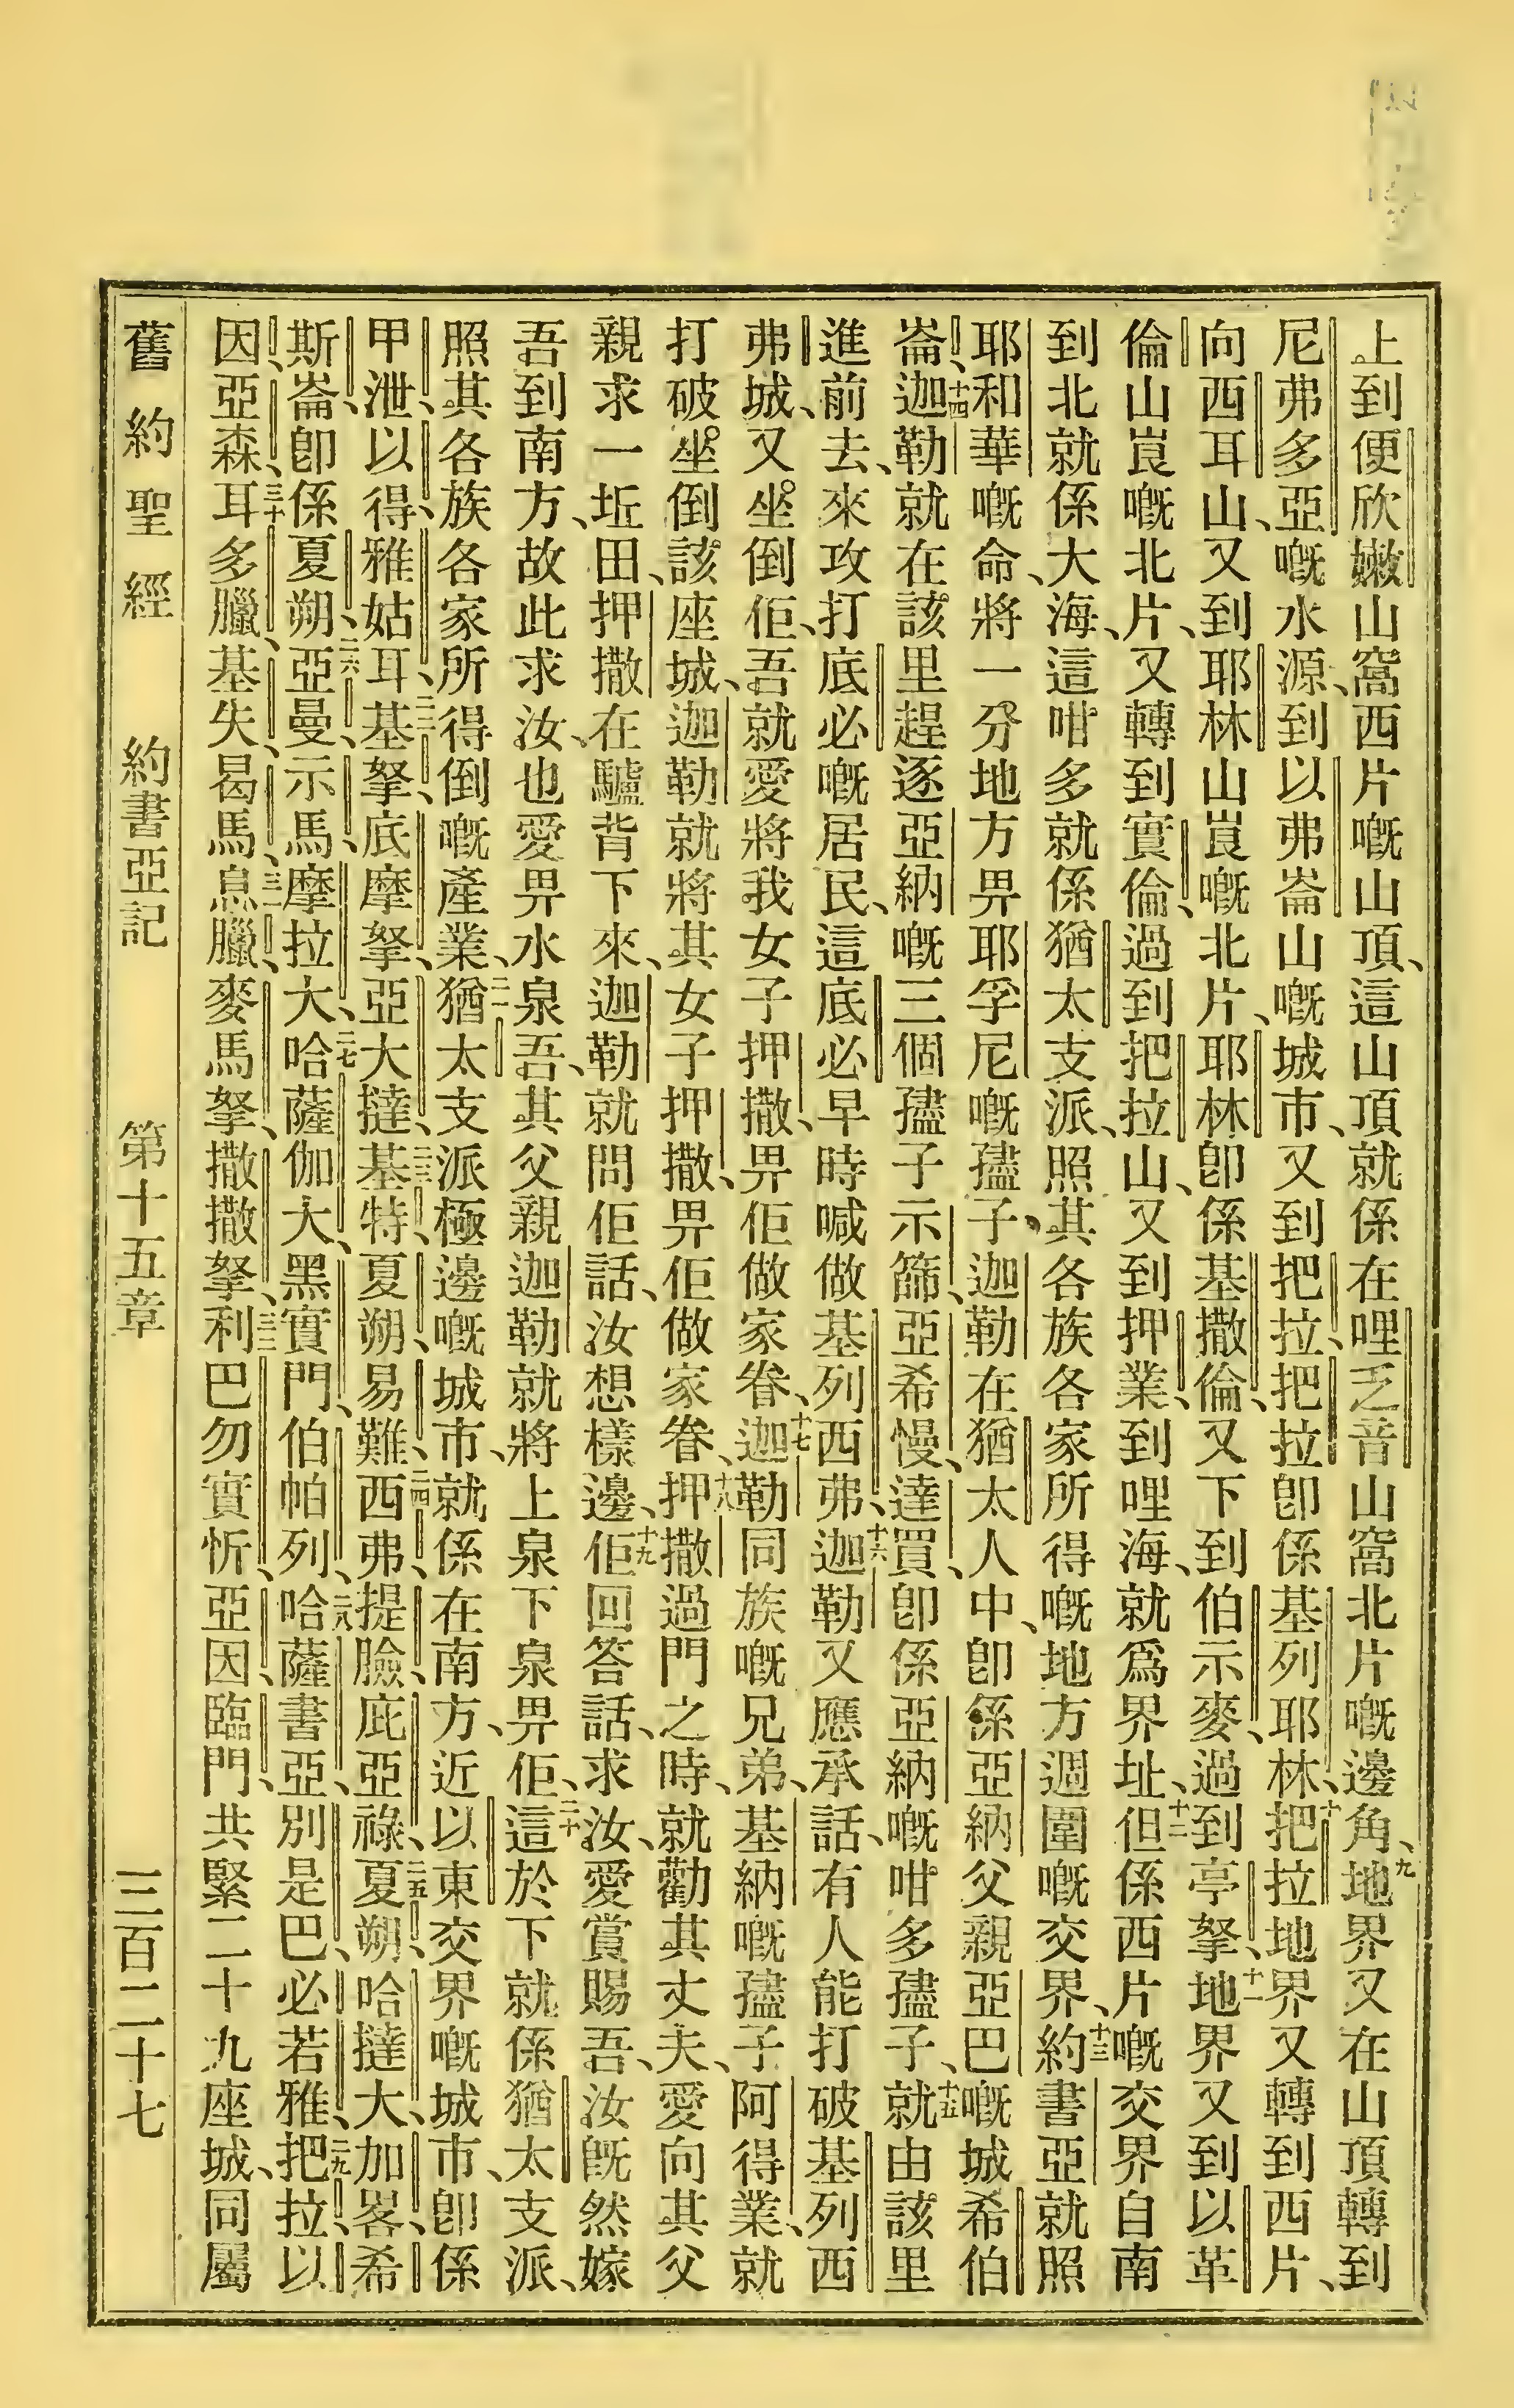 上到便欣嫩山窩西片嘅山頂、這山頂就係在哩乏音山窩北片嘅邊角、九地界又在山頂轉到
尼弗多亞嘅水源、到以弗崙山嘅城市、又到把拉、把拉卽係基列耶林、十把拉地界又轉到西片、
向西耳山、又到耶林山崀嘅北片、耶林卽係基撒倫、又下到伯示麥、過到亭拏、十一地界又到以革
倫山崀嘅北片、又轉到實倫、過到把拉山、又到押業、到哩海、就爲界址、十二但係西片嘅交界自南
到北就係大海、這咁多就係猶太支派、照其各族各家所得嘅地方週圍嘅交界、十三約書亞就照
耶和華嘅命、將一分地方畀耶孚尼嘅孻子、迦勒在猶太人中、卽係亞納父親亞巴嘅城希伯
崙、十四迦勒就在該里趕逐亞納嘅三個孻子示篩、亞希慢、達買、卽係亞納嘅咁多孻子、十五就由該里
進前去、來攻打底必嘅居民、這底必早時喊做基列西弗、十六迦勒又應承話、有人能打破基列西
弗城、又坐倒佢、吾就愛將我女子押撒、畀佢做家眷、十七迦勒同族嘅兄弟、基納嘅孻子阿得業、就
打破坐倒該座城、迦勒就將其女子押撒、畀佢做家眷、十八押撒過門之時、就勸其丈夫、愛向其父
親求一坵田、押撒在驢背下來、迦勒就問佢話、汝想樣邊、十九佢回答話、求汝、愛賞賜吾、汝旣然嫁
吾到南方、故此求汝、也愛畀水泉吾、其父親迦勒就將上泉下泉畀佢、二十這於下就係猶太支派、
照其各族各家所得倒嘅產業、二一猶太支派極邊嘅城市、就係在南方、近以東交界嘅城市、卽係
甲泄、以得、雅姑耳、二二基拏、底摩拏、亞大撻、二三基特、夏朔、易難、二四西弗、提臉、庇亞祿、二五夏朔哈撻大、加畧希
斯崙、卽係夏朔、二六亞曼、示馬、摩拉大、二七哈薩伽大、黑實門、伯帕列、二八哈薩書亞、別是巴、必若雅、二九把拉、以
因、亞森、三十耳多臘、基失、曷馬、三一息臘、麥馬拏、撒撒拏、三二利巴勿、實忻、亞因、臨門、共緊二十九座城、同屬
舊約聖經　約書亞記　第十五章　三百二十七